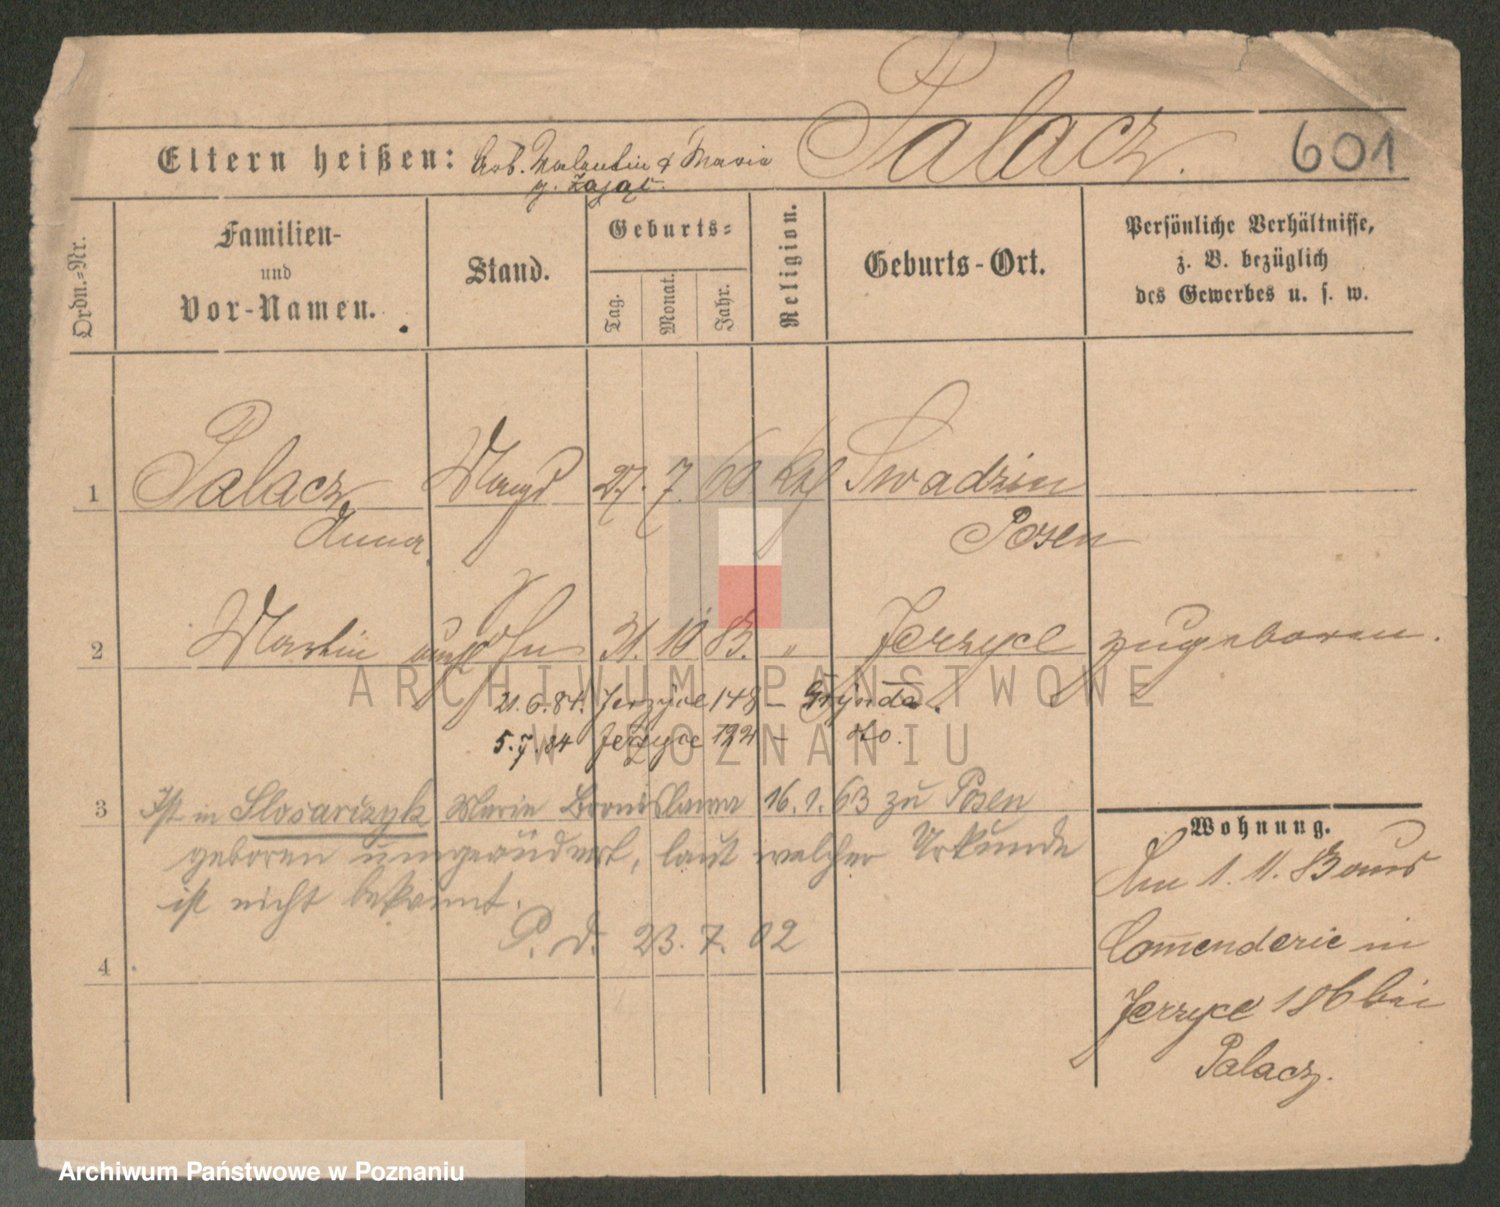 Palacz.
601
Eltern heißen: Arb. Valentin & Maria
g. Zając.
Ordn.-Nr.
Familien-
und
Vor-Namen.
Stand.
Geburts-
Tag.
Monat.
Jahr.
Religion.
Geburts-Ort.
Persönliche Verhältnisse,
z. B. bezüglich
des Gewerbes u. s. w.
1 Palacz Magd 27. 7. 60 kth Swadzim
Anna Posen
2 Martin Sohn 31. 10 83. " Jerzyce zugeboren.
21.6.84. Jerzyce 148 -
5. 84 Jerzyce - do.
3 Ist in Slosarczyk Marie Bronislawa 16. 1. 63 zu Posen
geboren umgeändert, laut welcher Urkunde
ist nicht bekannt.
P. d. 23. 7. 02
4
Wohnung.
Am 1. 11. 83 aus
Comenderie in
Jerzyce 186 bei
Palacz.
ARCHIWUM PAŃSTWOWE
W POZNANIU
Archiwum Państwowe w Poznaniu